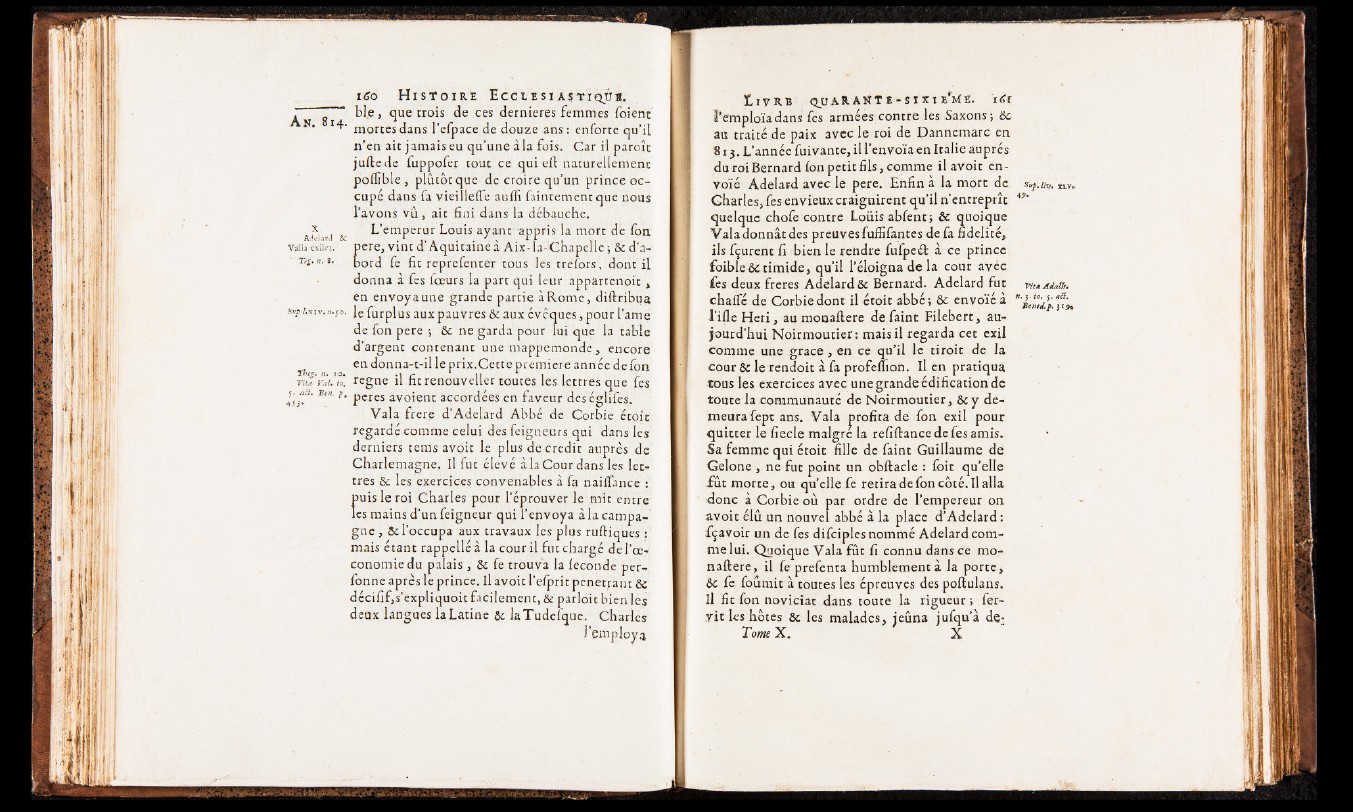 160 HISTOIRE ECCLESIASTIQUE.
AN. 814.
ble, que trois de ces dernieres femmes ſoient
mortes dans l'eſpace de douze ans : enſorte qu'il
n'en ait jamais eu qu'une à la fois. Car il paroît
juſte de ſuppoſer tout ce qui eſt naturellement
poſſible, plûtôt que de croire qu'un prince oc-
cupé dans ſa vieilleſſe auſſi ſaintement que nous
l'avons vû, ait fini dans la débauche.
X
Adelard &
Valla exilez.
Teg. n. 8.
L'emperur Louis ayant appris la mort de ſon
pere, vint d'Aquitaine à Aix-la-Chapelle ; & d'a-
bord ſe fit repreſenter tous les treſors, dont il
donna à ſes ſœurs la part qui leur appartenoit,
en envoya une grande partie à Rome, diſtribua
Sup l.xlv. n.50.
le ſurplus aux pauvres & aux évêques, pour l'ame
de ſon pere ; & ne garda pour lui que la table
d'argent contenant une mappemonde, encore
en donna-t-il le prix. Cette premiere année de ſon
Theg. n. 10.
Vita Val. to.
5. act. Ben. p.
453.
regne il fit renouveller toutes les lettres que ſes
peres avoient accordées en faveur des égliſes.
Vala frere d'Adelard Abbé de Corbie étoit
regardé comme celui des ſeigneurs qui dans les
derniers tems avoit le plus de credit auprès de
Charlemagne. Il fut élevé à la Cour dans les let-
tres & les exercices convenables à ſa naiſſance :
puis le roi Charles pour l'éprouver le mit entre
les mains d'un ſeigneur qui l'envoya à la campa-
gne, & l'occupa aux travaux les plus ruſtiques ;
mais étant rappellé à la cour il fut chargé de l'œ-
conomie du palais, & ſe trouva la ſeconde per-
ſonne après le prince. Il avoit l'eſprit penetrant &
déciſif, s'expliquoit facilement, & parloit bien les
deux langues la Latine & la Tudeſque. Charles
l'employa
LIVRE QUARANTE-SIXIE'ME. 161
l'emploïa dans ſes armées contre les Saxons ; &
au traité de paix avec le roi de Dannemarc en
813. L'année ſuivante, il l'envoïa en Italie auprés
du roi Bernard ſon petit fils, comme il avoit en-
voïé Adelard avec le pere. Enfin à la mort de
Sup. liv. XLV.
49.
Charles, ſes envieux craiguirent qu'il n'entreprît
quelque choſe contre Loüis abſent ; & quoique
Vala donnât des preuves ſuffiſantes de ſa fidelité,
ils ſçurent ſi bien le rendre ſuſpect à ce prince
foible & timide, qu'il l'éloigna de la cour avéc
ſes deux freres Adelard & Bernard. Adelard fut
Vita Adalh.
n. 3. to. 5. act.
Bened. p.
chaſſé de Corbie dont il étoit abbé ; & envoïé à
l'iſle Heri, au monaſtere de ſaint Filebert, au-
jourd'hui Noirmoutier : mais il regarda cet exil
comme une grace, en ce qu'il le tiroit de la
cour & le rendoit à ſa profeſſion. Il en pratiqua
tous les exercices avec une grande édification de
toute la communauté de Noirmoutier, & y de-
meura ſept ans. Vala profita de ſon exil pour
quitter le ſiecle malgré la reſiſtance de ſes amis.
Sa femme qui étoit fille de ſaint Guillaume de
Gelone, ne fut point un obſtacle : ſoit qu'elle
fût morte, ou qu'elle ſe retira de ſon côté. Il alla
donc à Corbie où par ordre de l'empereur on
avoit élû un nouvel abbé à la place d'Adelard :
ſçavoir un de ſes diſciples nommé Adelard com-
me lui. Quoique Vala fût ſi connu dans ce mo-
naſtere, il ſe preſenta humblement à la porte,
& ſe ſoûmit à toutes les épreuves des poſtulans.
Il fit ſon noviciat dans toute la rigueur ; ſer-
vit les hôtes & les malades, jeûna juſqu'à de-
Tome X. X